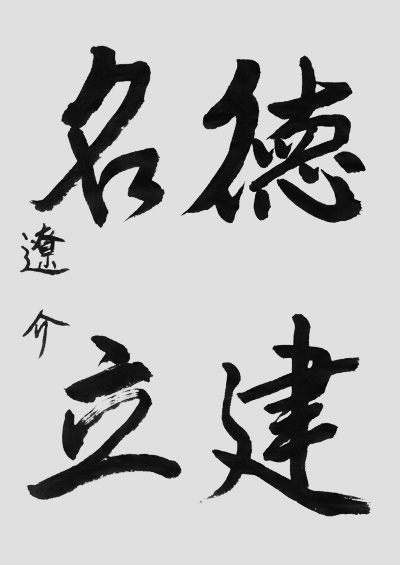 徳建
名立
遼介